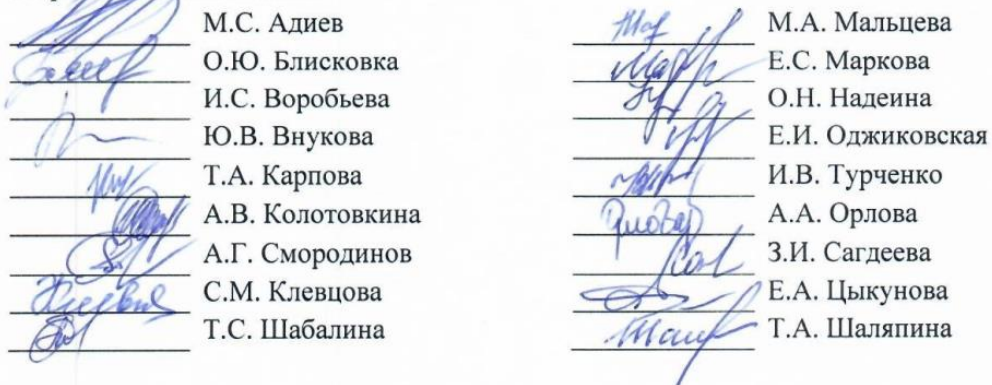 М.С. Адиев
О.Ю. Блисковка
И.С. Воробьева
Ю.В. Внукова
Т.А. Карпова
А.В. Колотовкина
А.Г. Смородинов
С.М. Клевцова
Т.С. Шабалина
М.А. Мальцева
Е.С. Маркова
О.Н. Надеина
Е.И. Оджиковская
И.В. Турченко
А.А. Орлова
З.И. Сагдеева
Е.А. Цыкунова
Т.А. Шаляпина